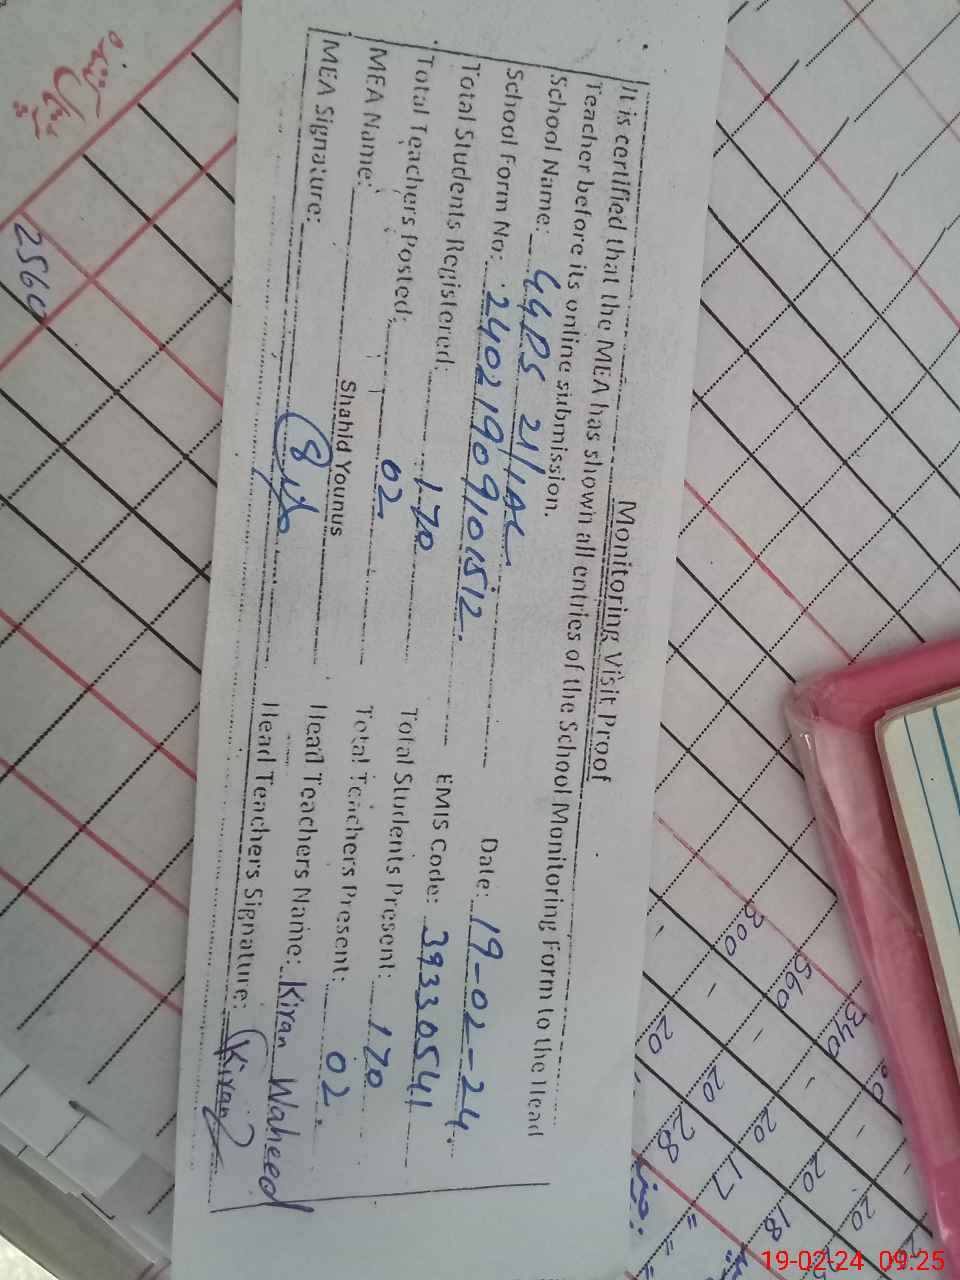 Monitoring Visit Proof
It is certified that the MEA has shown all entries of the School Monitoring Form to the Head
Teacher before its online submission.
School Name: GGPS 21/1AL Date: 19-02-24
School Form No: 24021909101512 EMIS Code: 39330541
Total Students Registered: 170 Total Students Present: 170
Total Teachers Posted: 02 Total Teachers Present: 02
MEA Name: Shahid Younus Head Teachers Name: Kiran Waheed
MEA Signature: Head Teachers Signature: Kiran
2560
300 560 340
20 20 20 20 20
28 17 18
19-02-24 09:25